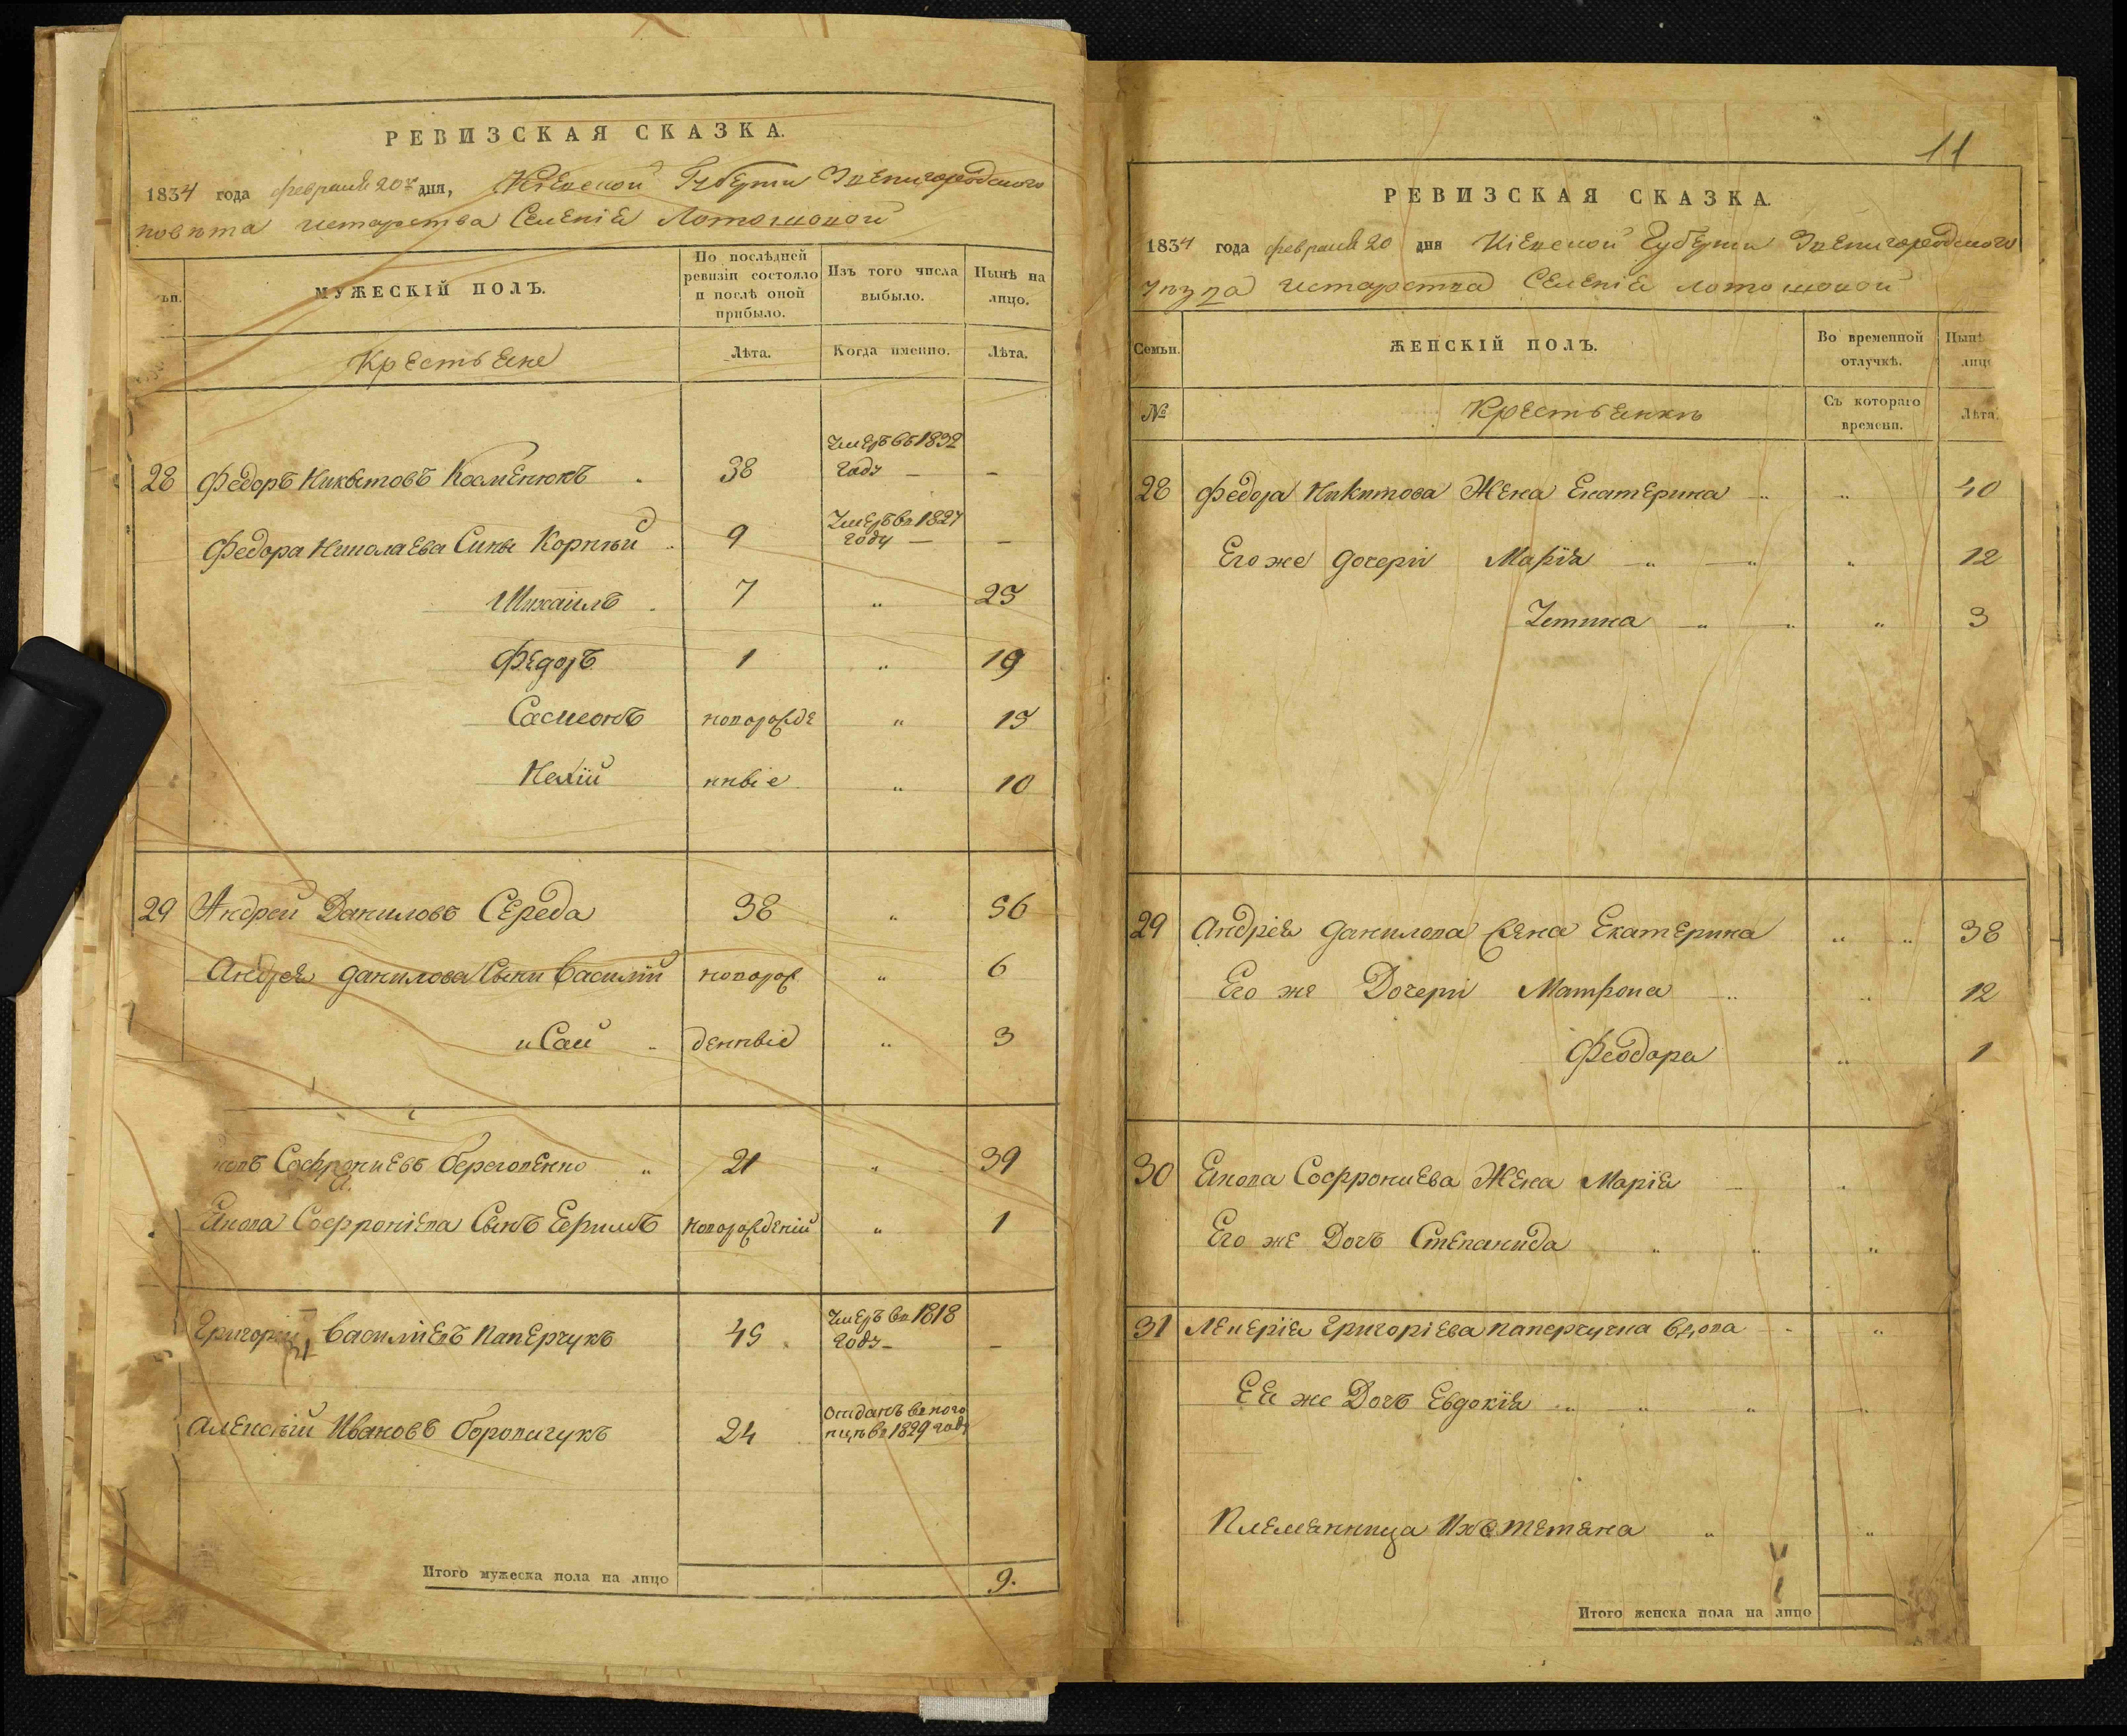 РЕВИЗСКАЯ СКАЗКА.
1834 года февраля 20 дня, Кіевской Губерни Звенигородского
повѣта истарства Селенія Лотошовой
МУЖЕСКІЙ ПОЛЪ.
По послѣдней ревизіи состояло и послѣ оной прибыло.
Изъ того числа выбыло.
Нынѣ на лицо.
Крестьяне
Лѣта.
Когда именно.
Лѣта.
28 Федоръ Никитовъ 38 Умеръ въ 1832 году — –
Федора Николаева Сины Корнѣй 9 Умеръ в 1827 году — –
Михаилъ 7 „ 25
Федоръ 1 „ 19
Симеонъ новорожде „ 15
нные „ 10
29 Андрей Даниловъ Середа 38 „ 56
Андрея данилова Сыни Василій новорож „ 6
Исай денные „ 3
Софрониевъ береговенко „ 21 „ 39
Якова Софроніева Сынъ Ефимъ новорожденій „ 1
Григорій 31 Василіевъ Паперчукъ 45 Умеръ в 1818 году –
Алексѣй Ивановъ 24 Отданъ в 1829 году
Итого мужеска пола на лицо 9.
11
РЕВИЗСКАЯ СКАЗКА.
1834 года февраля 20 дня Кіевской Губерни Звенигородского
уѣзда истарства Селенія лотошовой
Семьи.
ЖЕНСКІЙ ПОЛЪ.
Во временной отлучкѣ.
Нынѣ
лиц
№
Крестьянкѣ
Съ котораго времени.
Лѣта.
28 Федора Никитова Жена Екатерина „ „ 40
Его же дочери Марія „ „ „ 12
Устина „ „ „ 3
29 Андрія данилова жена Екатерина „ „ 38
Его же Дочери Матрона „ „ 12
Феодора „ 1
30 Якова Софрониева Жена Марія
Его же Дочъ Степанида „ „ „
31 Григоріева паперчучка Вдова „
Ея же Дочъ Евдокія „ „ „
Племянница Ихъ „ „
Итого женска пола на лицо